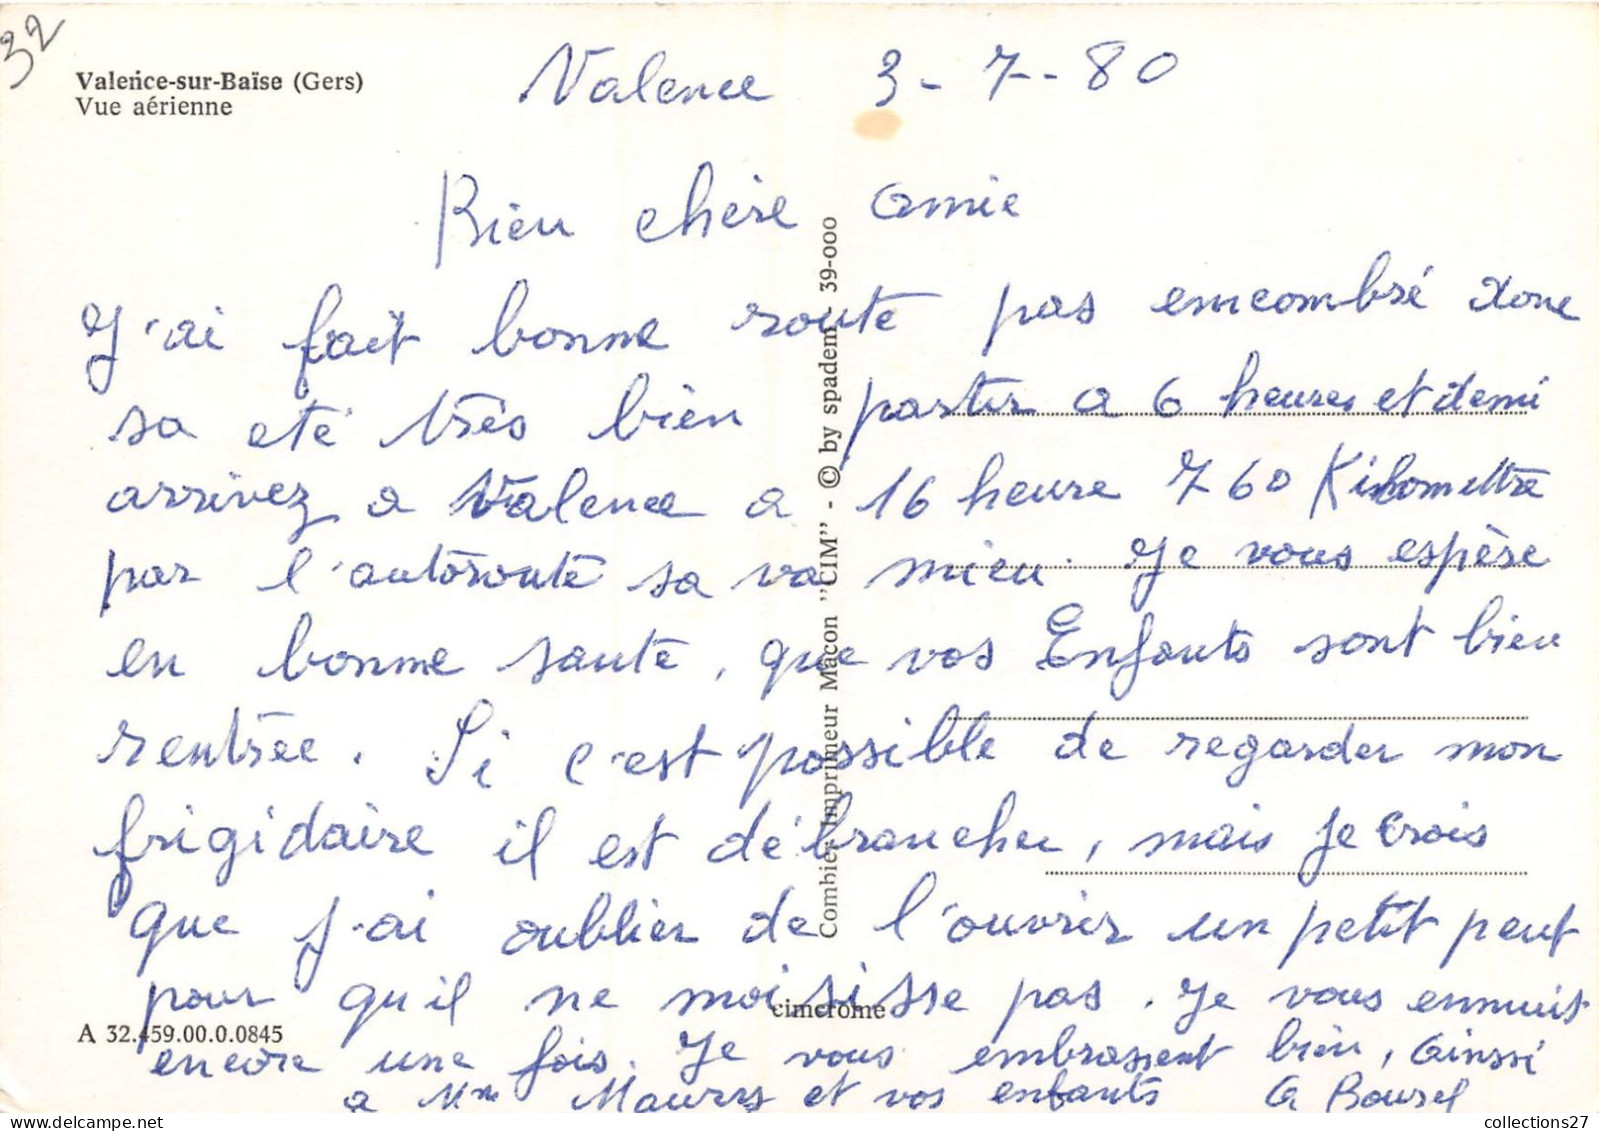 32
Valence-sur-Baïse (Gers)
Vue aérienne
Valence 3-7-80
Bien chère amie
J'ai fait bonne route pas encombré donc
sa eté très bien partir a 6 heures et demi
arrivez a Valence a 16 heure 760 Kilomettre
par l'autoroute sa va mieu. Je vous espère
en bonne santé, que vos Enfants sont bien
rentrée. Si c'est possible de regarder mon
frigidaire il est débrancher, mais je crois
que j'ai oublier de l'ouvrir un petit peut
pour qu'il ne moisisse pas. Je vous ennuis
encore une fois. Je vous embrassent bien, Ainssi
a Mme Maurys et vos enfants G Boursel
Combier Imprimeur Macon "CIM" - © by spadem - 39-000
cimcrome
A 32.459.00.0.0845
collections27